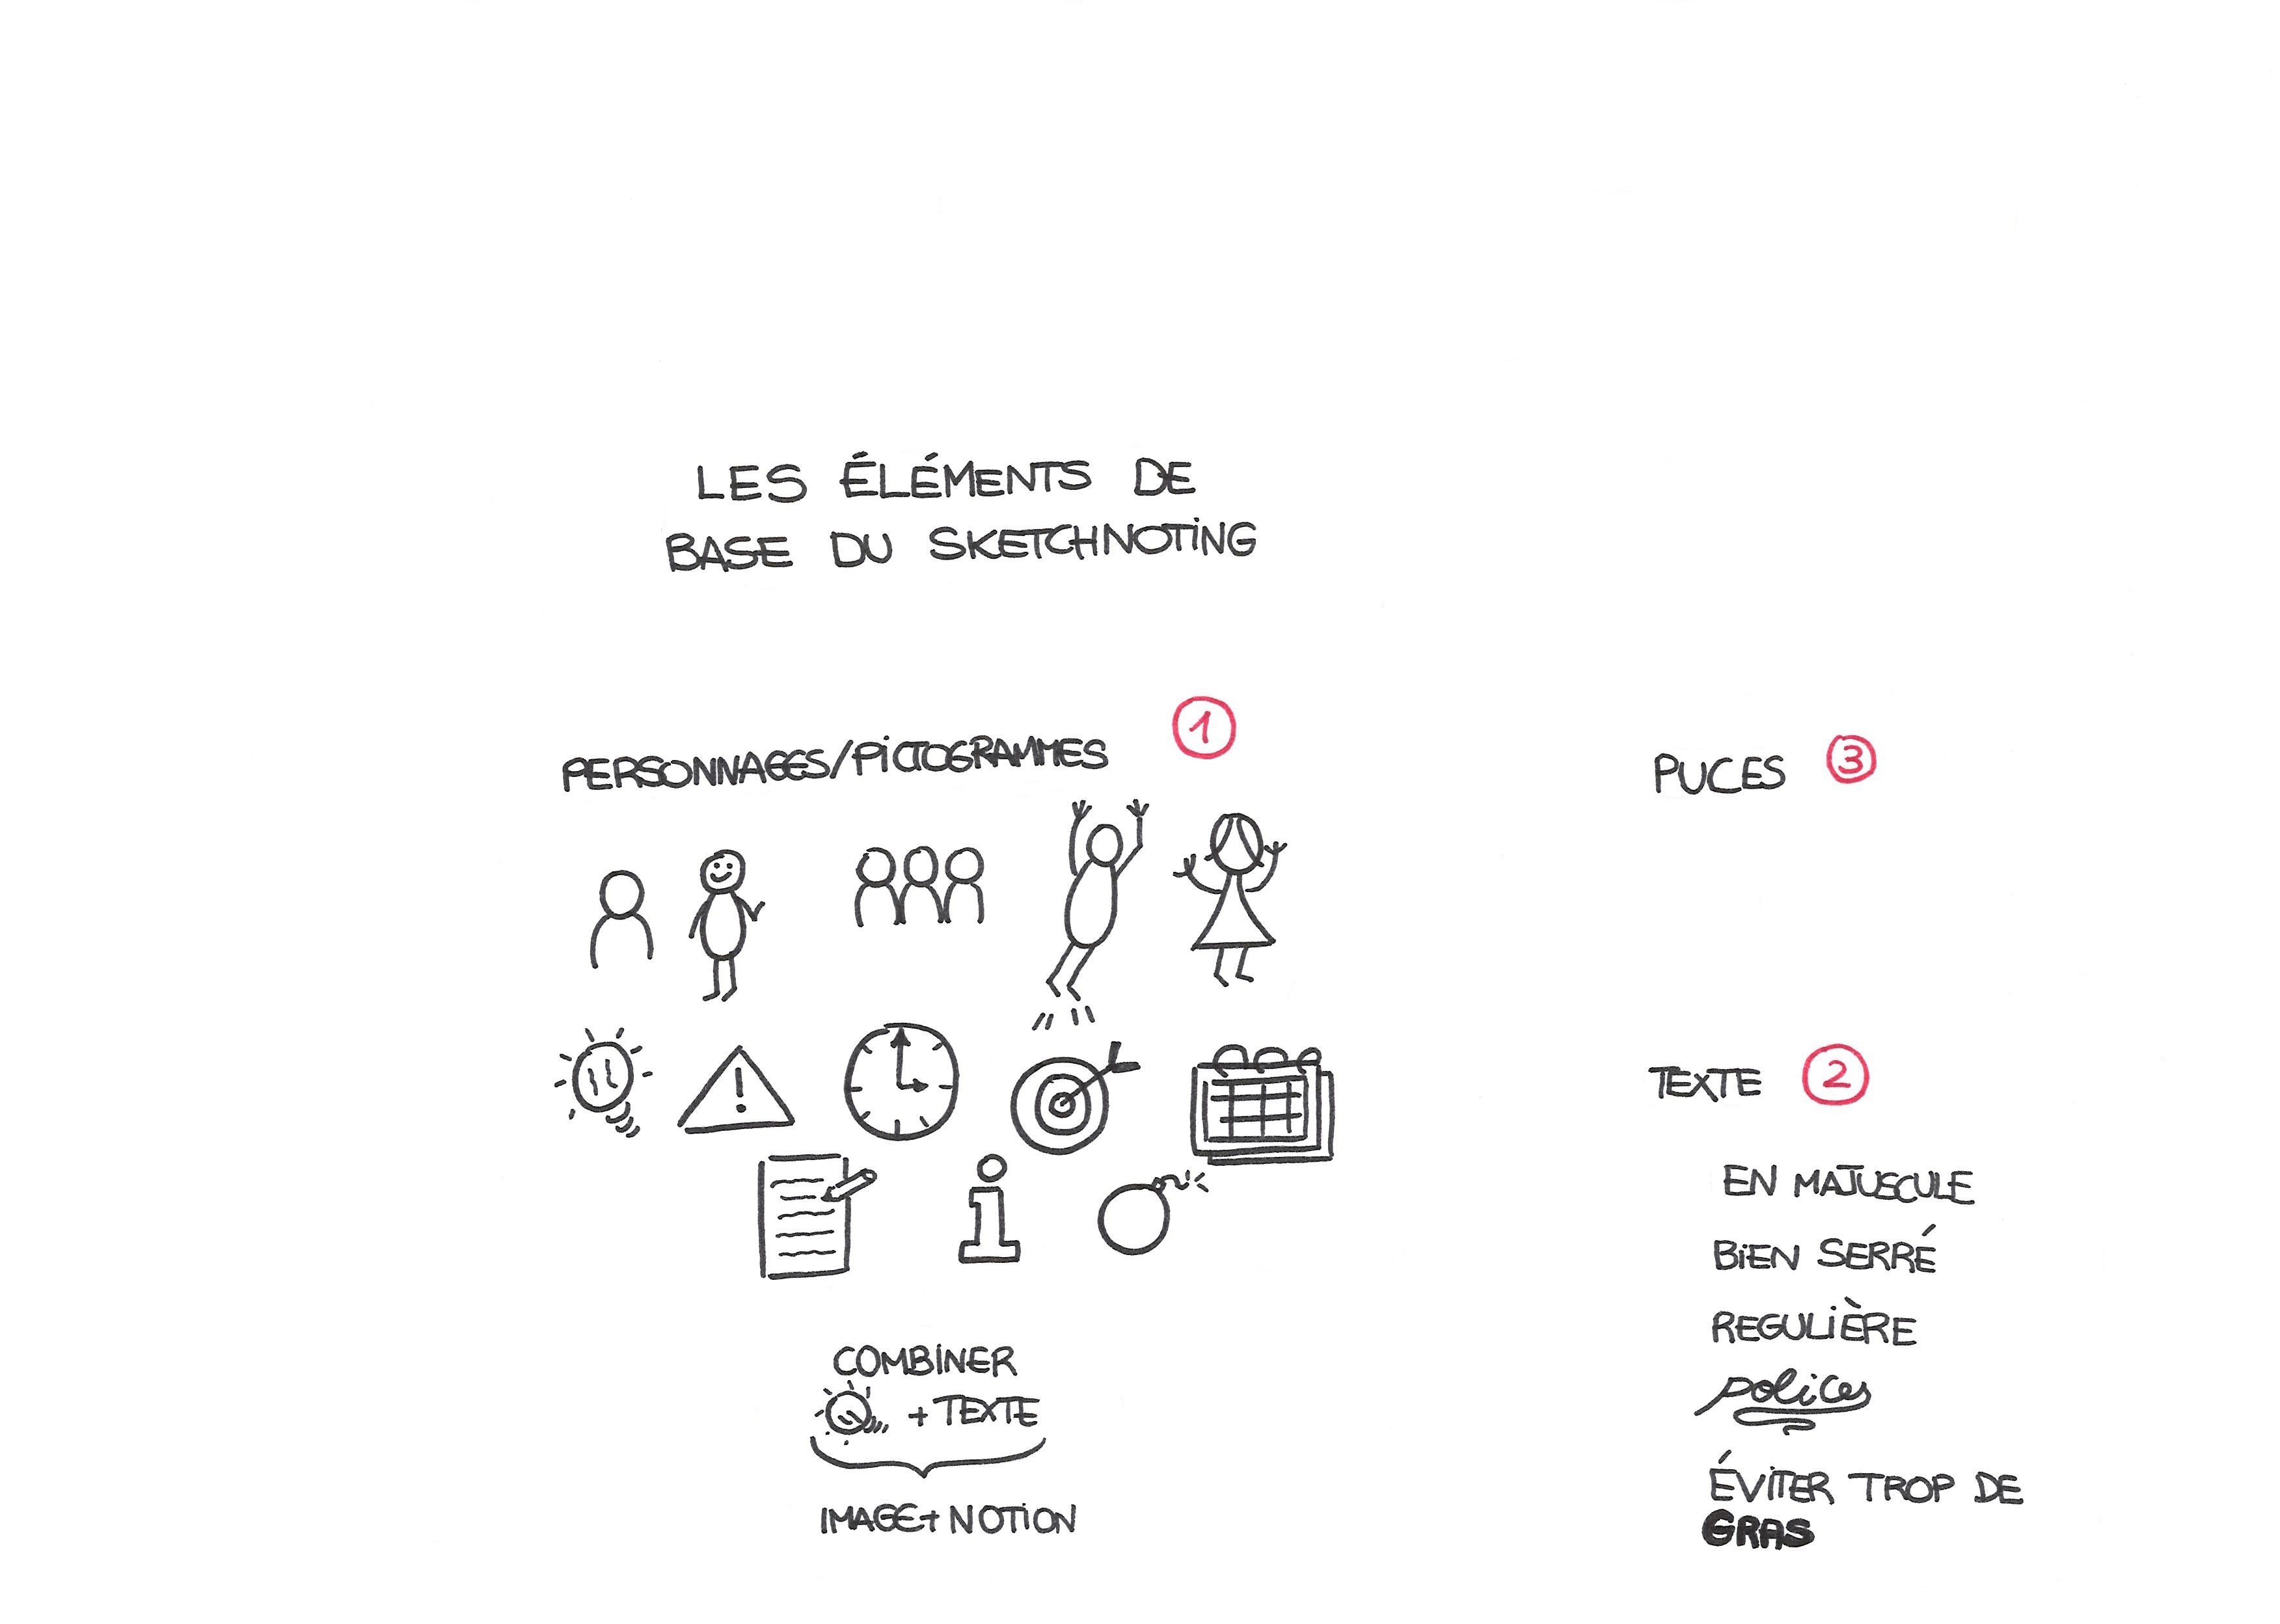 LES ÉLÉMENTS DE
BASE DU SKETCHNOTING
PERSONNAGES/PICTOGRAMMES 1
COMBINER
+ TEXTE
IMAGE + NOTION
PUCES 3
TEXTE 2
EN MAJUSCULE
BIEN SERRÉ
REGULIÈRE
polices
ÉVITER TROP DE
GRAS